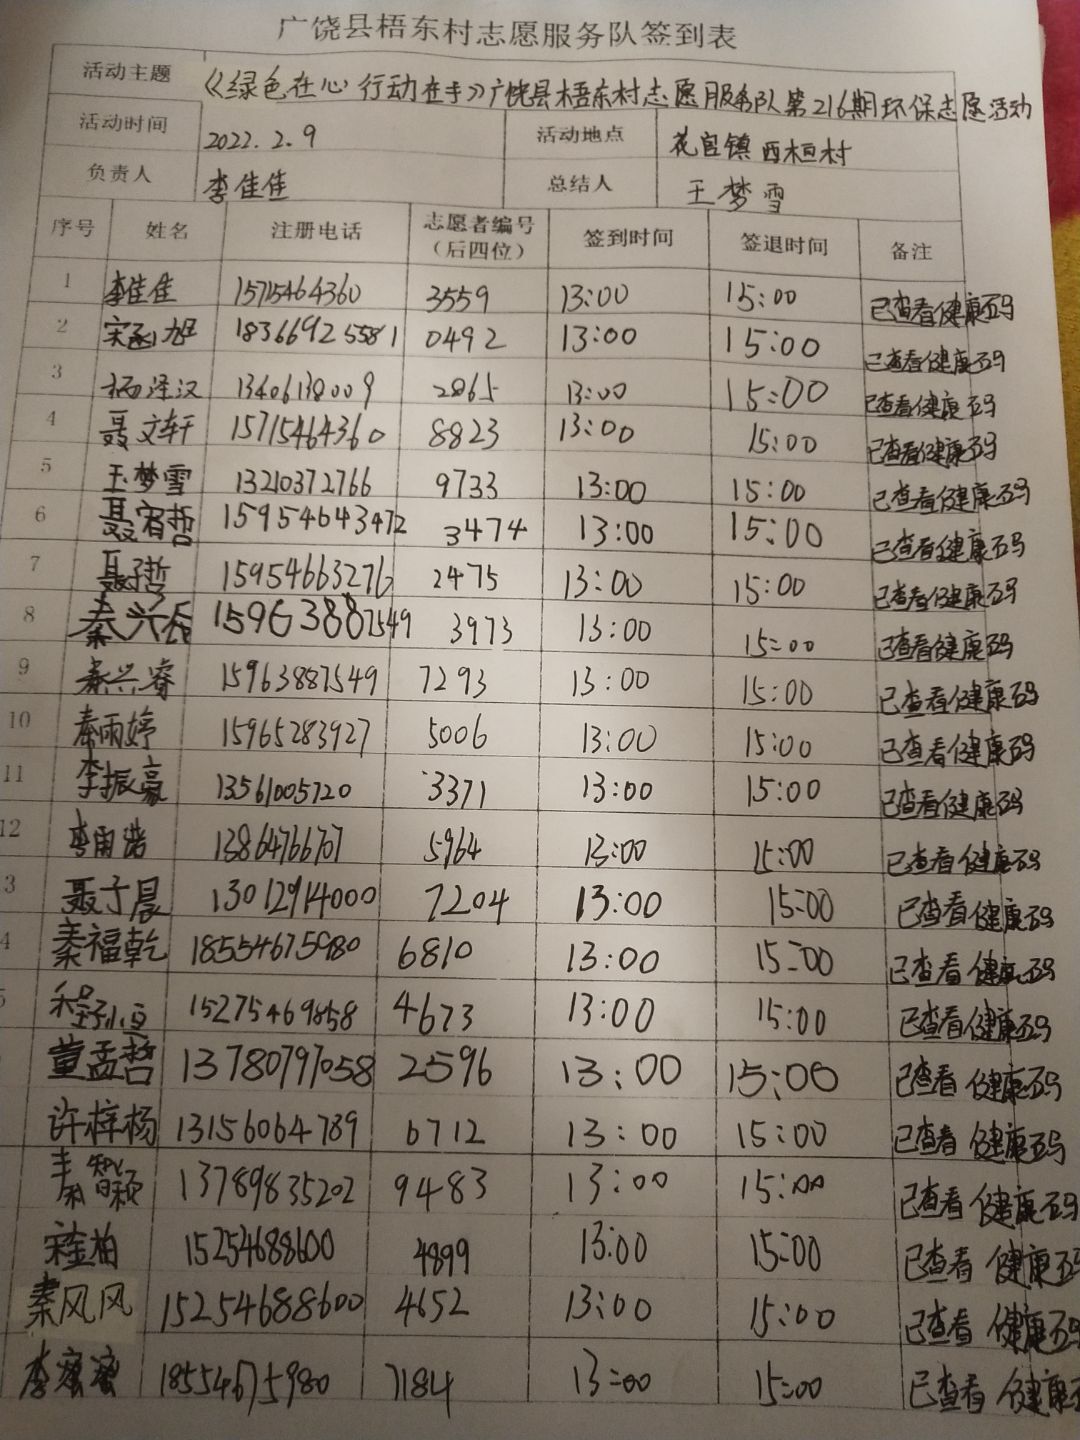 广饶县梧东村志愿服务队签到表
活动主题 《绿色在心 行动在手》广饶县梧东村志愿服务队第216期环保志愿活动
活动时间 2022.2.9 活动地点 花官镇西桓村
负责人 李佳佳 总结人 王梦雪
序号 姓名 注册电话 志愿者编号（后四位） 签到时间 签退时间 备注
1 李佳佳 15715464360 3559 13:00 15:00 已查看健康码
2 宋函旭 18366925581 0492 13:00 15:00 已查看健康码
3 泽汉 13406138009 2865 13:00 15:00 已查看健康码
4 聂文轩 15715464360 8823 13:00 15:00 已查看健康码
5 王梦雪 13210372766 9733 13:00 15:00 已查看健康码
6 聂宥哲 15954643472 3474 13:00 15:00 已查看健康码
7 聂子哲 15954663276 2475 13:00 15:00 已查看健康码
8 秦兴 15963887549 3973 13:00 15:00 已查看健康码
9 秦兴睿 15963887549 7293 13:00 15:00 已查看健康码
10 秦雨婷 15965283927 5006 13:00 15:00 已查看健康码
11 李振豪 13561005720 3371 13:00 15:00 已查看健康码
12 李雨诺 13864766707 5964 13:00 15:00 已查看健康码
3 聂子晨 13012914000 7204 13:00 15:00 已查看健康码
4 秦福乾 18554675980 6810 13:00 15:00 已查看健康码
5 程子心 15275469858 4673 13:00 15:00 已查看健康码
董孟哲 13780797058 2596 13:00 15:00 已查看健康码
许梓杨 13156064789 6712 13:00 15:00 已查看健康码
秦智颖 13789835202 9483 13:00 15:00 已查看健康码
宋金柏 15254688600 4899 13:00 15:00 已查看健康码
秦风风 15254688600 4652 13:00 15:00 已查看健康码
李蜜蜜 18554675980 7184 13:00 15:00 已查看健康码